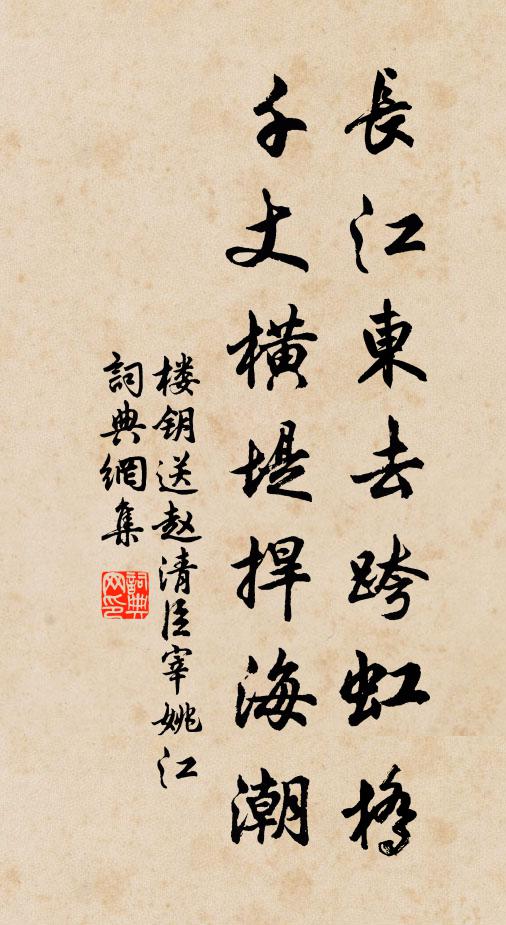 長江東去跨虹橋
千丈橫堤捍海潮
楼钥送赵清臣宰姚江
詞典網集
詞典网印